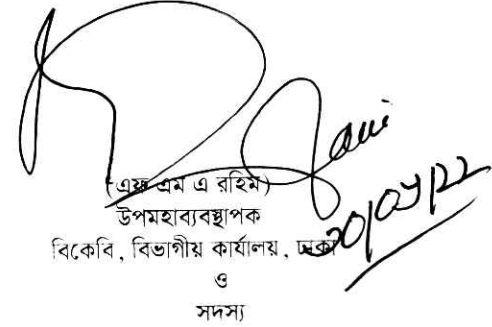 (এফ এম এ রহিম)
উপমহাব্যবস্থাপক
বিকেবি, বিভাগীয় কার্যালয়, ঢাকা
ও
সদস্য